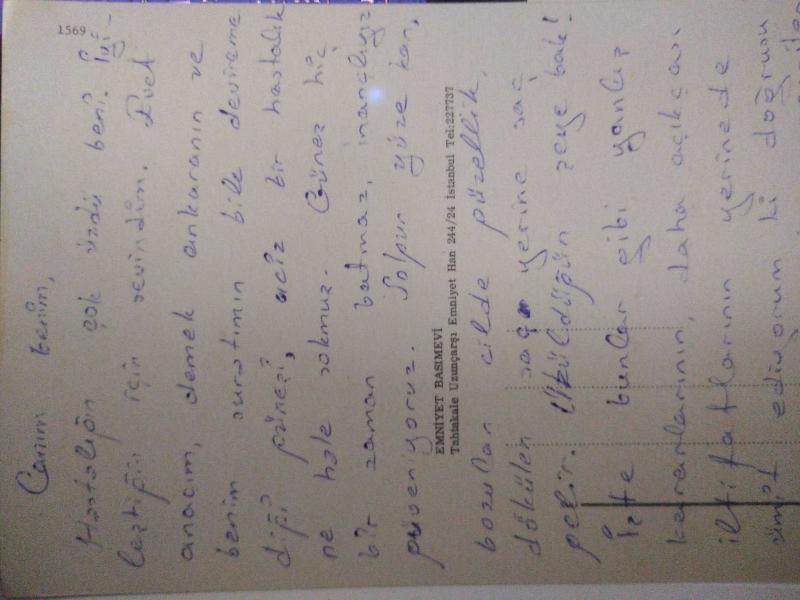 1569
Canım benim,
Hastalığın çok üzdü beni. İyi-
leştiğin için sevindim. Evet
anacım, demek ankaranın ve
benim suratımın bile devireme
diği güneşi, aciz bir hastalık
ne hale sokmuş. Güneş hiç
bir zaman batmaz, inançlıyız
güveniyoruz. Solgun yüze kan,
EMNİYET BASIMEVİ
Tahtakale Uzunçarşı Emniyet Han 244/24 İstanbul Tel:227737
bozulan cilde güzellik,
dökülen saça yerine saç
gelir. Üzüldüğün şeye bak!
İşte bunlar gibi yanlış
kararlarının, daha açıkcası
iltifatlarının yerinede
ümit ediyorum ki doğrusu